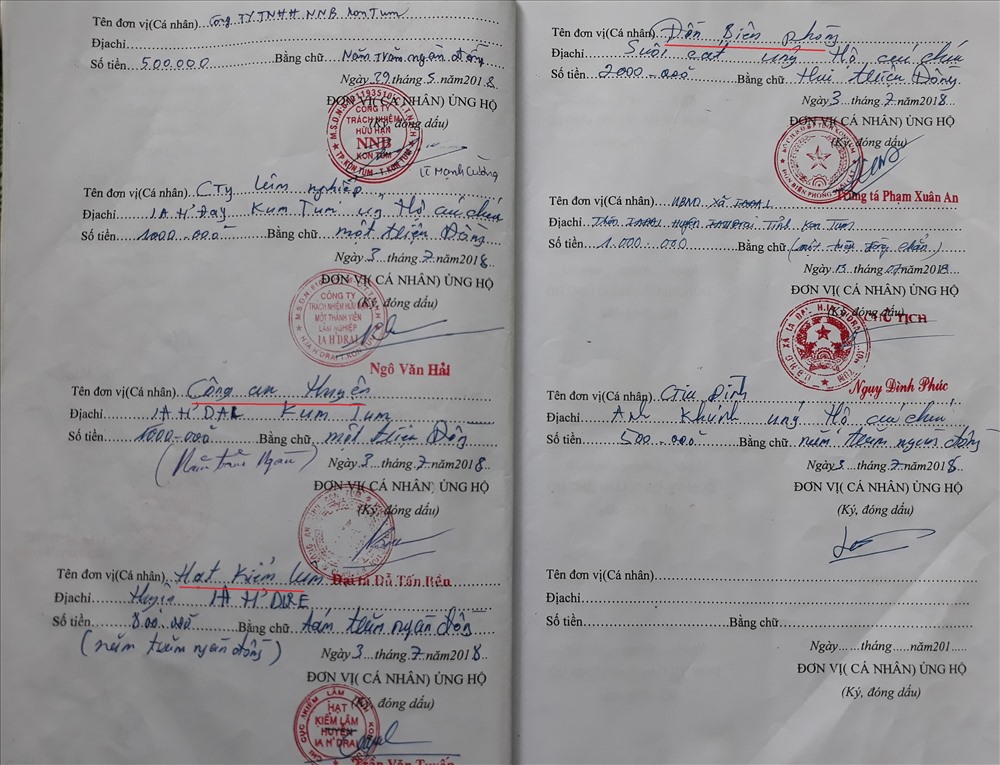 Tên đơn vị(Cá nhân) Công TY TNHH NNB Kon Tum
Địachỉ
Số tiền 500.000 Bằng chữ Năm trăm ngàn đồng
Ngày 29 tháng 5 năm2018
ĐƠN VỊ( CÁ NHÂN) ỦNG HỘ
(Ký, đóng dấu)
CÔNG TY
TRÁCH NHIỆM
HỮU HẠN
NNB
KON TUM
TP.KON TUM - T.KON TUM
Lê Mạnh Cường
Tên đơn vị(Cá nhân) CTy lâm nghiệp
Địachỉ IA H' Day Kum Tum ủng Hộ cứu chùa
Số tiền 1000-000 Bằng chữ một triệu Đồng
Ngày 3 tháng 7 năm2018
ĐƠN VỊ( CÁ NHÂN) ỦNG HỘ
(Ký, đóng dấu)
CÔNG TY
TRÁCH NHIỆM HỮU HẠN
MỘT THÀNH VIÊN
LÂM NGHIỆP
IA H'DRAI
H.IA H'DRAI-T.KON TUM
Ngô Văn Hải
Tên đơn vị(Cá nhân) Công an Huyện
Địachỉ IA H'DAL Kum Tum
Số tiền 1000-000 Bằng chữ một triệu Đồng
(Năm trăm Ngàn)
Ngày 3 tháng 7 năm2018
ĐƠN VỊ( CÁ NHÂN) ỦNG HỘ
(Ký, đóng dấu)
Đại tá Đỗ Tấn Bền
Tên đơn vị(Cá nhân) Hạt Kiểm lâm
Địachỉ Huyện IA H'DRE
Số tiền 800.000 Bằng chữ tám trăm ngàn đồng
(năm trăm ngàn đồng)
Ngày 3 tháng 7 năm2018
ĐƠN VỊ( CÁ NHÂN) ỦNG HỘ
(Ký, đóng dấu)
CHI CỤC KIỂM LÂM
HẠT
KIỂM LÂM
HUYỆN
IA H'DRAI
Trần Văn Tuyến
Tên đơn vị(Cá nhân) Đồn Biên phòng
Địachỉ Suối cát ủng Hộ cứu chùa
Số tiền 2000-000 Bằng chữ Hai triệu Đồng
Ngày 3 tháng 7 năm2018
ĐƠN VỊ( CÁ NHÂN) ỦNG HỘ
(Ký, đóng dấu)
Trung tá Phạm Xuân An
Tên đơn vị(Cá nhân) UBND Xã IADAL
Địachỉ Tỉnh Kon Tum
Số tiền 1.000.000 Bằng chữ (một triệu đồng chẵn)
Ngày 13 tháng 07 năm2018
ĐƠN VỊ( CÁ NHÂN) ỦNG HỘ
(Ký, đóng dấu)
CHỦ TỊCH
Nguy Đình Phúc
Tên đơn vị(Cá nhân) Gia Đình
Địachỉ Anh Khánh ủng Hộ cứu chùa
Số tiền 500-000 Bằng chữ năm trăm ngàn đồng
Ngày 3 tháng 7 năm2018
ĐƠN VỊ( CÁ NHÂN) ỦNG HỘ
(Ký, đóng dấu)
Tên đơn vị(Cá nhân)
Địachỉ
Số tiền Bằng chữ
Ngày......tháng......năm 201.....
ĐƠN VỊ( CÁ NHÂN) ỦNG HỘ
(Ký, đóng dấu)